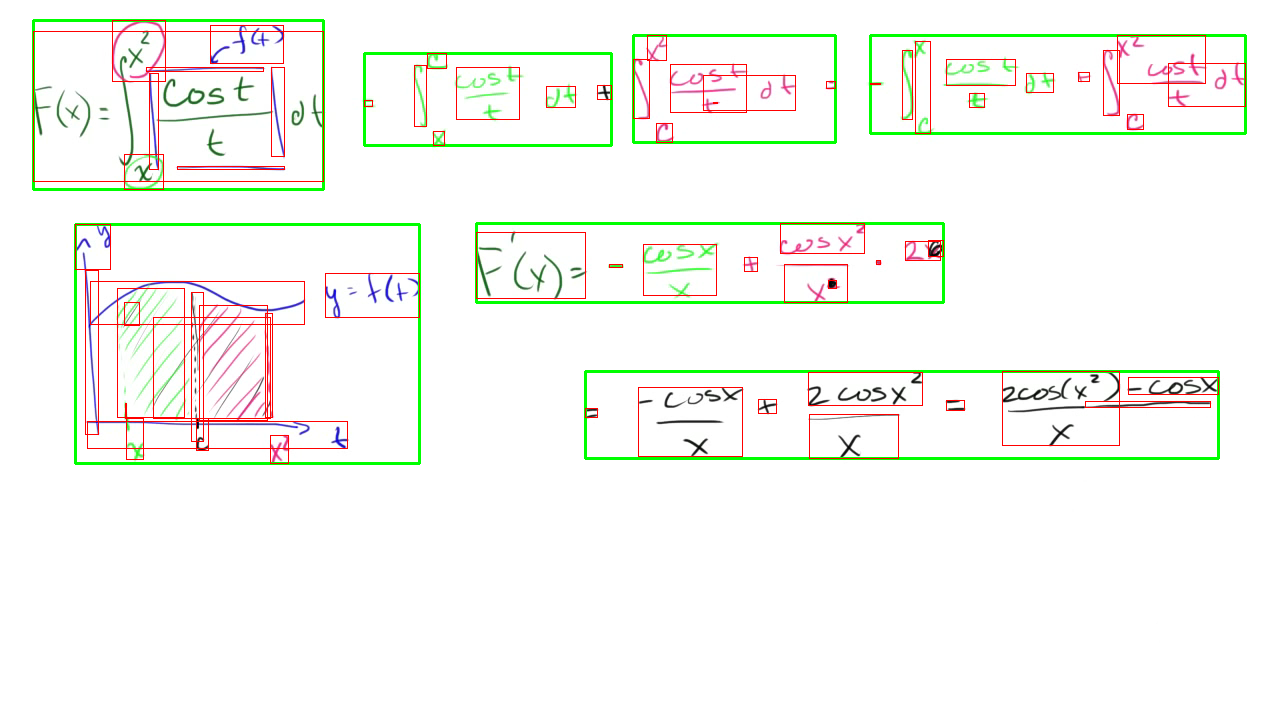 F(x) = ∫_x^{x²} [cos t / t] dt f(t)
- ∫_x^c cos t / t dt + ∫_c^{x²} cos t / t dt = - ∫_c^x cos t / t dt + ∫_c^{x²} cos t / t dt
y
y = f(t)
x c x² t
F'(x) = - cos x / x + cos x² / x² · 2x
= -cos x / x + 2 cos x² / x = 2cos(x²) - cos x / x